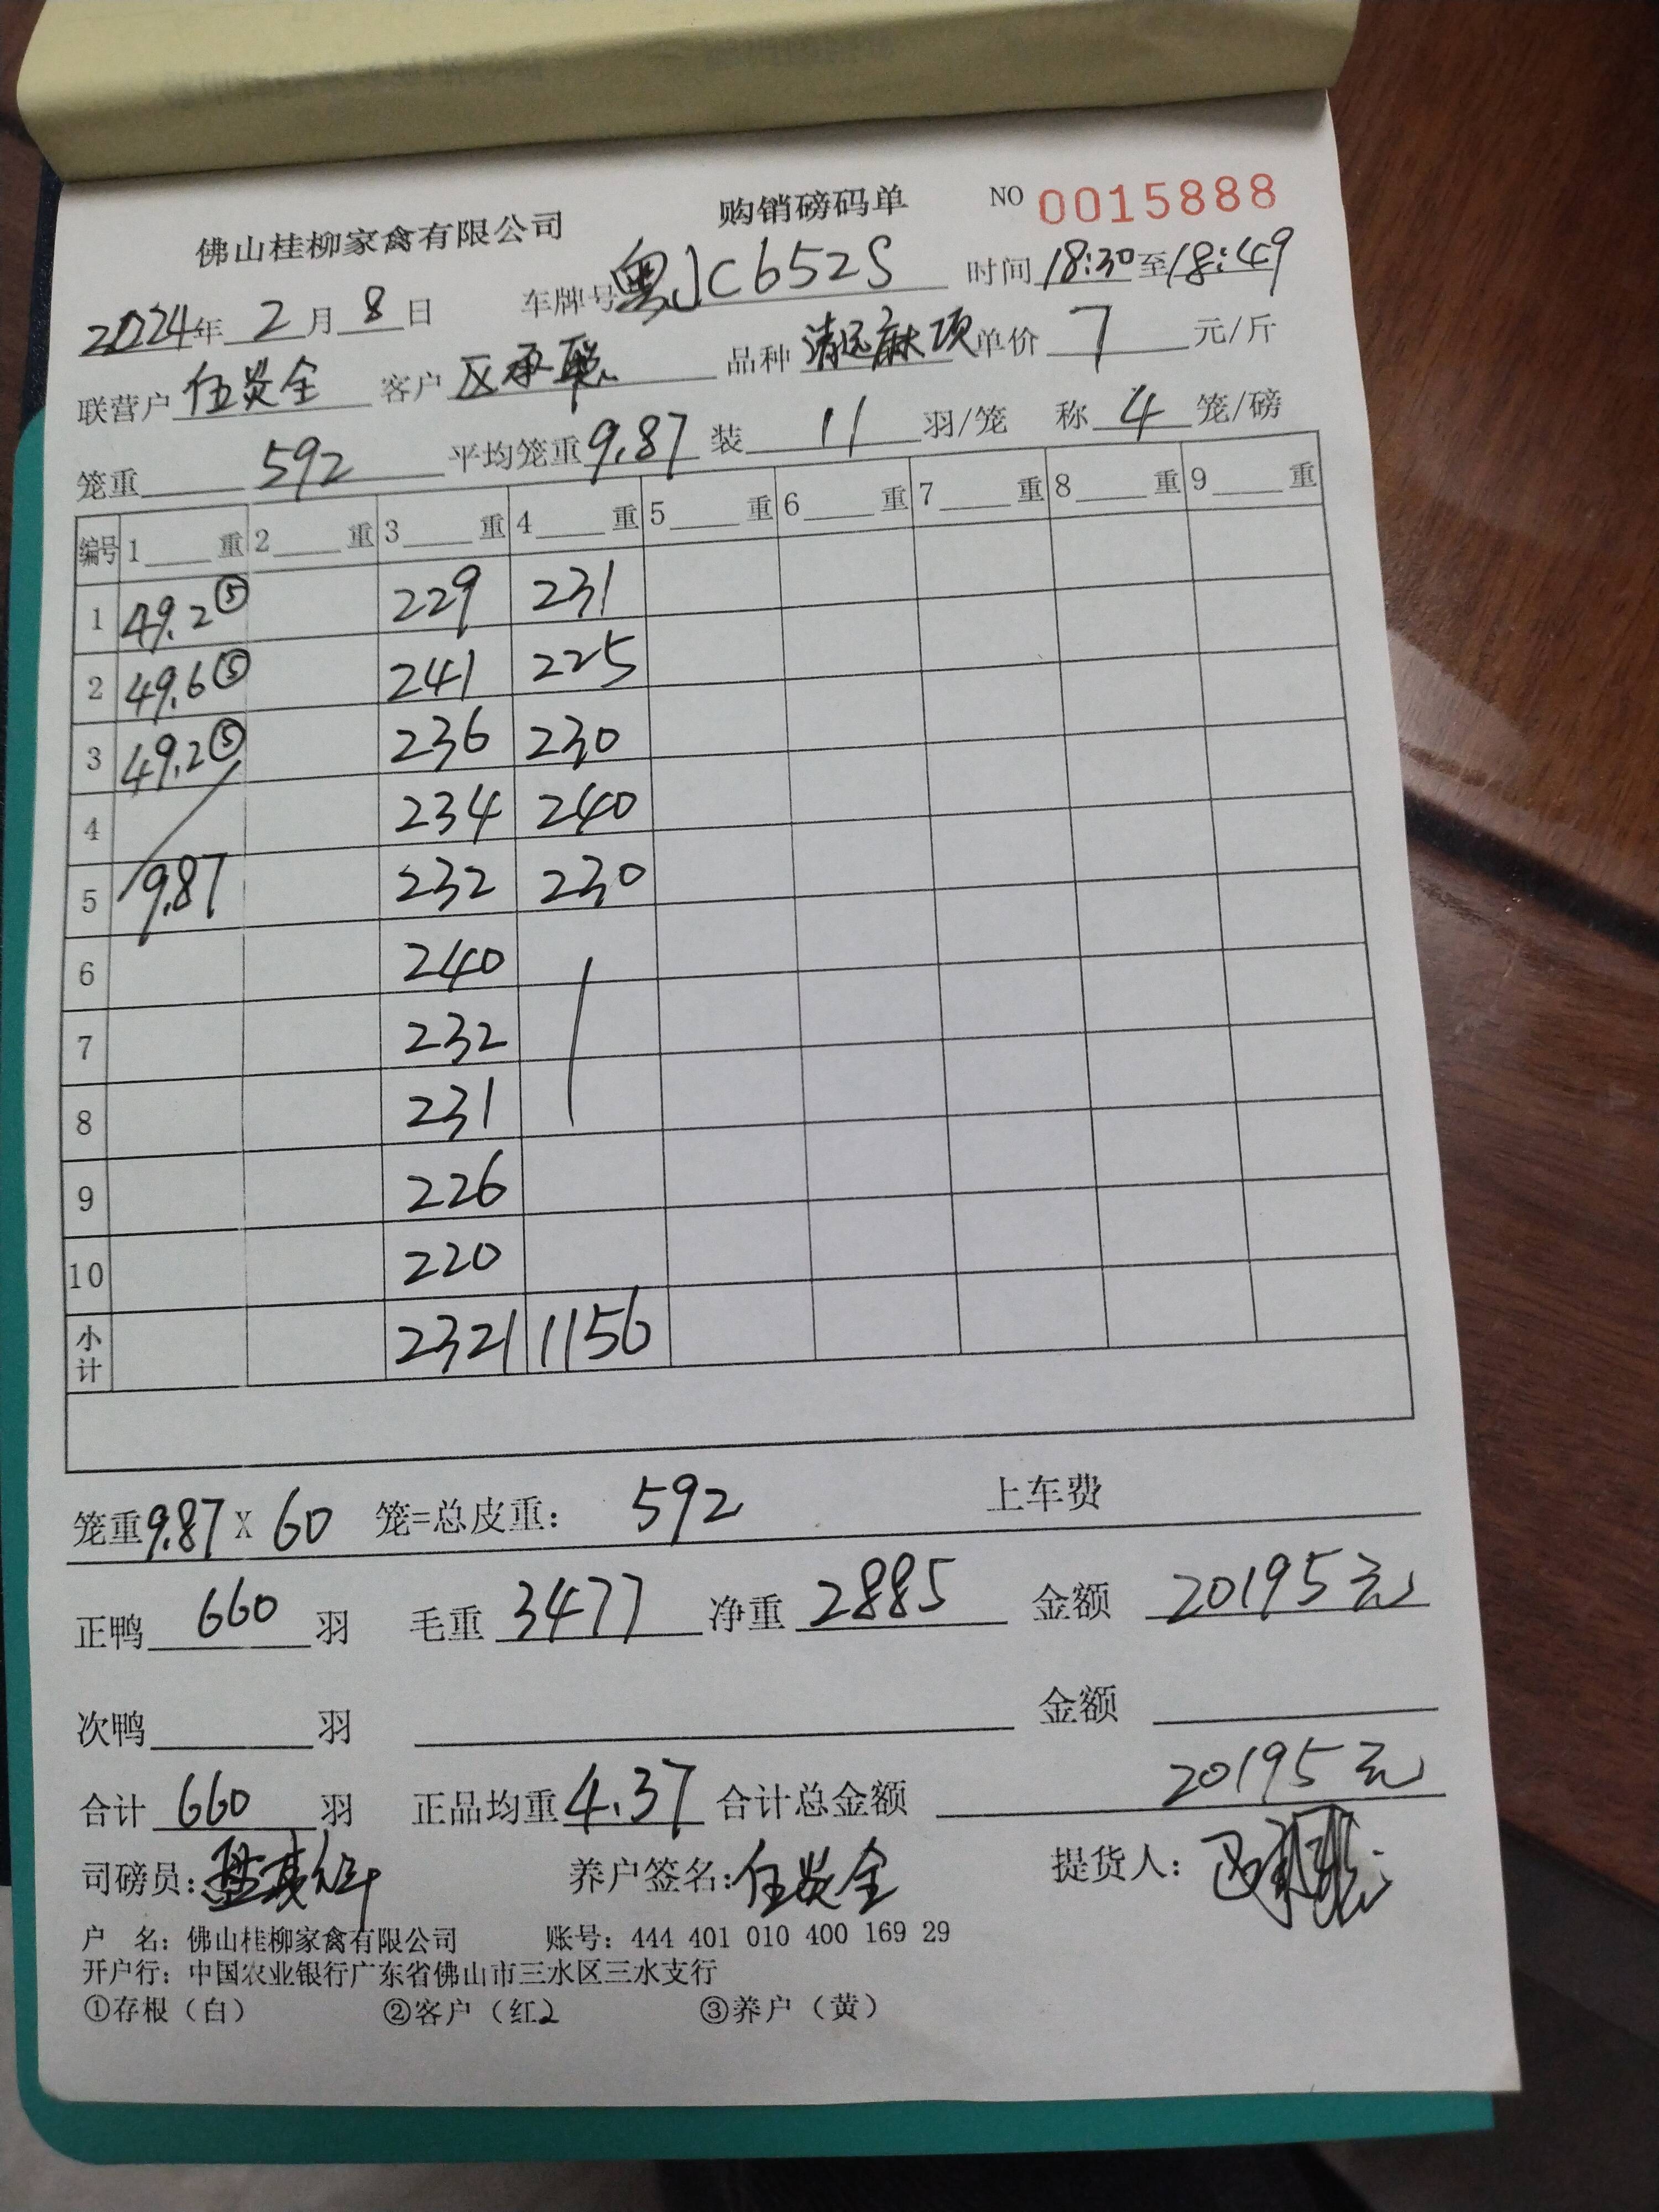 购销磅码单 NO 0015888
佛山桂柳家禽有限公司
2024年 2 月 8 日 车牌号 粤JC652S 时间 18:30 至 18:49
联营户 伍炎全 客户 区承聪 品种 清远麻项 单价 7 元/斤
笼重 592 平均笼重 9.87 装 11 羽/笼 称 4 笼/磅
编号 1 重 2 重 3 重 4 重 5 重 6 重 7 重 8 重 9 重
1 49.2⑤ 229 231
2 49.6⑤ 241 225
3 49.2⑤ 236 230
4 234 240
5 9.87 232 230
6 240
7 232
8 231
9 226
10 220
小计 2321 1156
笼重 9.87 X 60 笼=总皮重: 592 上车费
正鸭 660 羽 毛重 3477 净重 2885 金额 20195元
次鸭 羽 金额
合计 660 羽 正品均重 4.37 合计总金额 20195元
司磅员: 养户签名: 伍炎全 提货人:
户 名: 佛山桂柳家禽有限公司 账号: 444 401 010 400 169 29
开户行: 中国农业银行广东省佛山市三水区三水支行
①存根（白） ②客户（红 ③养户（黄）